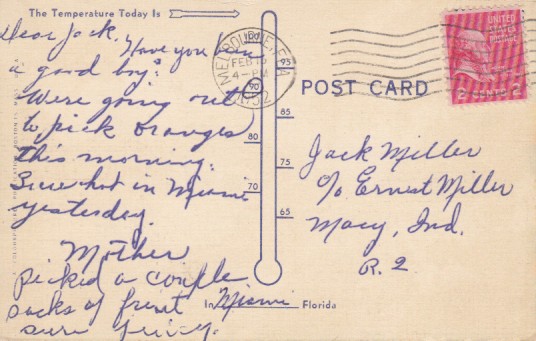 The Temperature Today Is
Dear Jack,
Have you been
a good boy?
Were going out
to pick oranges
this morning.
Sure hot in Miami
yesterday.
Mother
Picked a couple
sacks of fruit
sure juicy.
MELBOURNE, FLA.
FEB 15
4 - PM
1952
100
95
90
85
80
75
70
65
In Miami Florida
UNITED
STATES
POSTAGE
2 CENTS 2
POST CARD
Jack Miller
c/o Ernest Miller
Macy, Ind.
R. 2